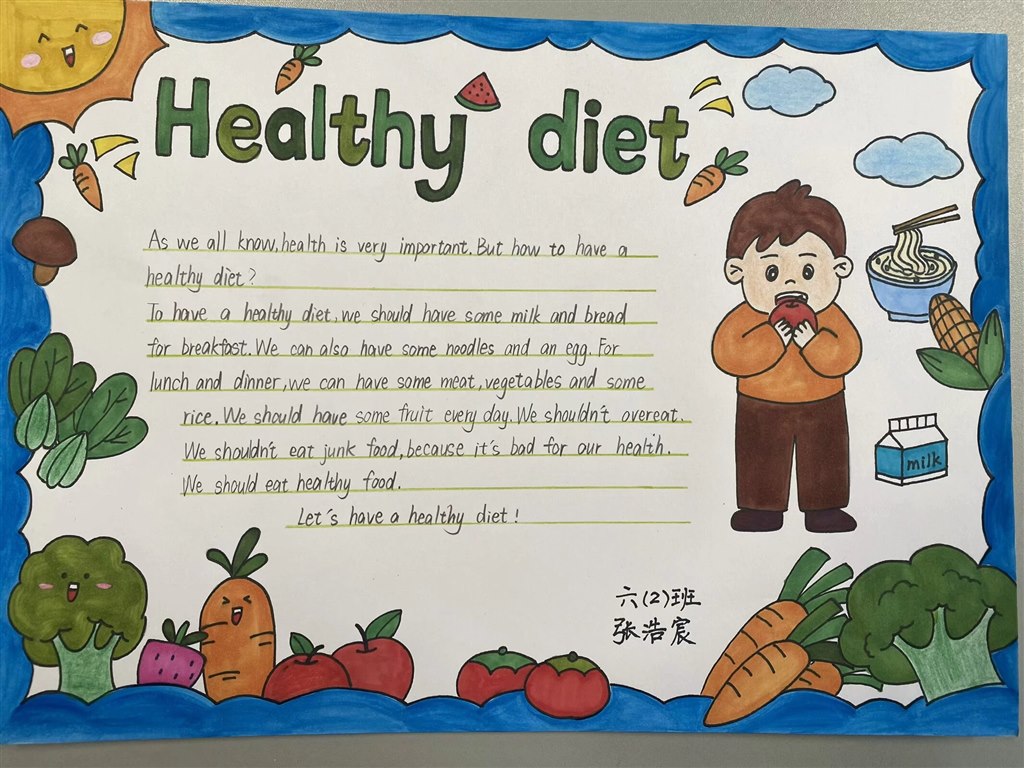 Healthy diet
As we all know, health is very important. But how to have a
healthy diet?
To have a healthy diet, we should have some milk and bread
for breakfast. We can also have some noodles and an egg. For
lunch and dinner, we can have some meat, vegetables and some
rice. We should have some fruit every day. We shouldn't overeat.
We shouldn't eat junk food, because it's bad for our health.
We should eat healthy food.
Let's have a healthy diet!
milk
六(2)班
张浩宸